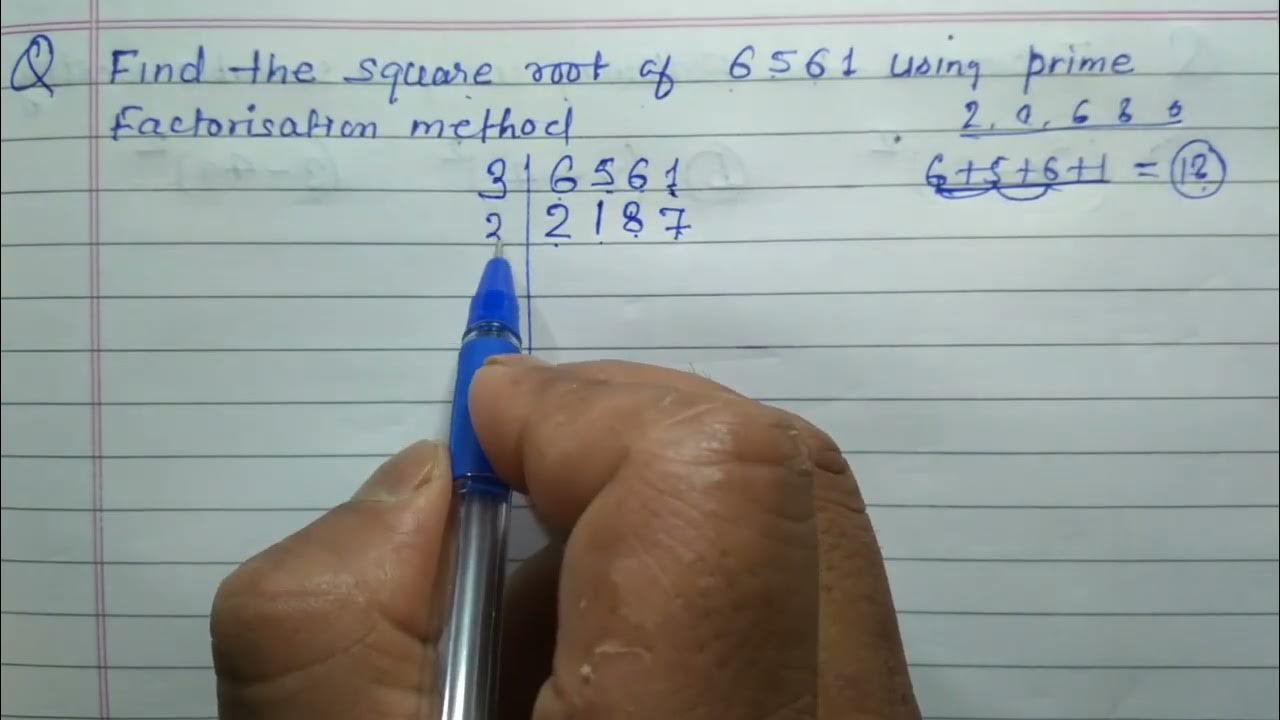 Q Find the square root of 6561 using prime
factorisation method
2, 0, 6 8 0
6+5+6+1 = 18
3 | 6 5 6 1
2 | 2 1 8 7